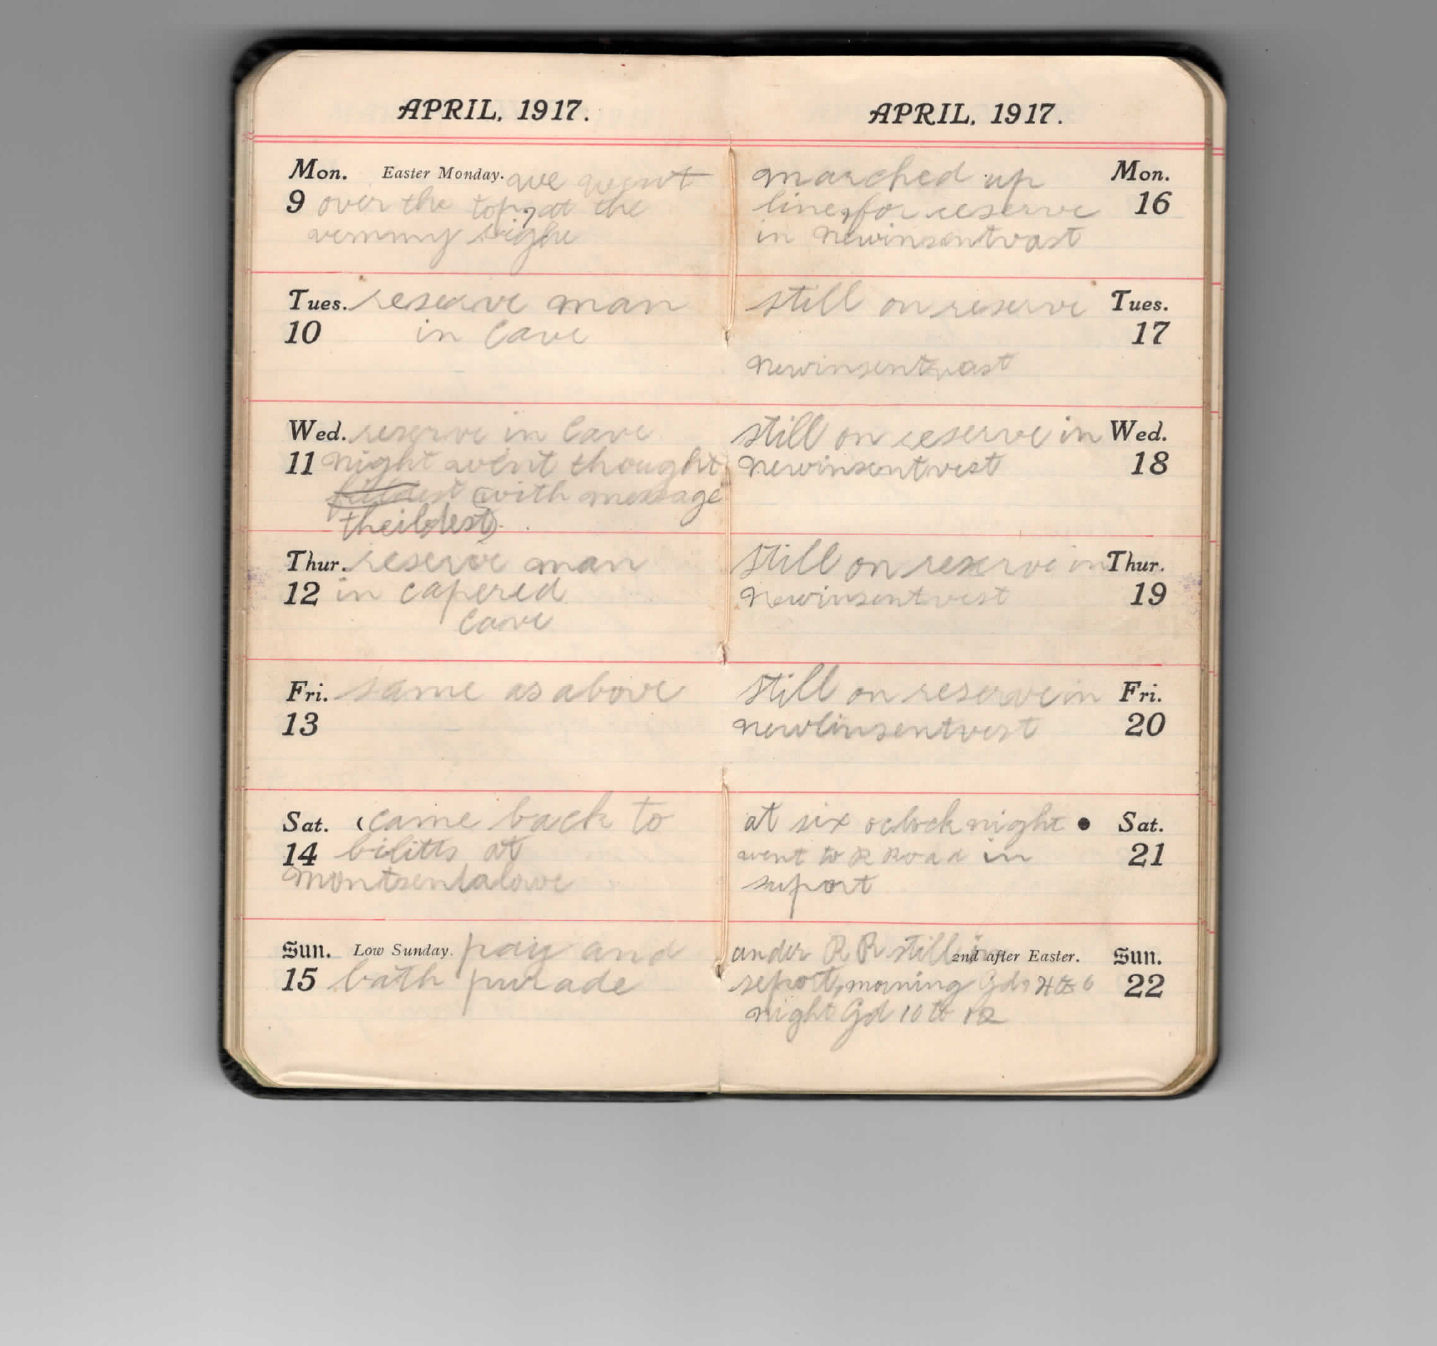 APRIL, 1917.
Mon. Easter Monday. we went
9 over the top, at the
vemmy
Tues. reserve man
10 in cave
Wed. reserve in cave
11 night went thought
with message
Thur. reserve man
12 in capered
cave
Fri. same as above
13
Sat. (came back to
14 bilitts at
Sun. Low Sunday. pay and
15 bath purade
APRIL, 1917.
marched up Mon.
line, for reserve 16
in newinsentvast
still on reserve Tues.
17
newinsentvast
still on reserve in Wed.
newinsentvest 18
still on reserve in Thur.
newinsentvest 19
still on reserve in Fri.
newlinsentvest 20
at six oclock night Sat.
went to R Road in 21
suport
under R R still in 2nd after Easter. Sun.
seport, morning Gd, 4 to 6 22
night Gd 10 to 12